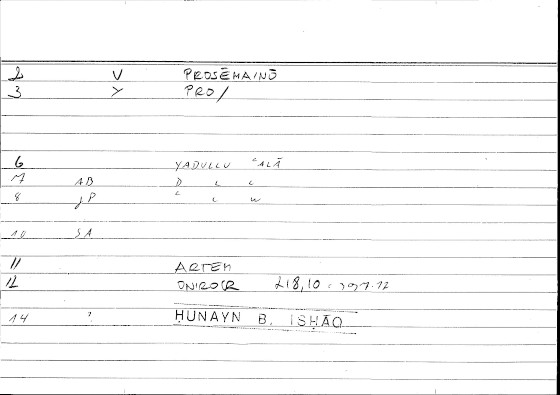 2 V PROSĒMAINŌ
3 Y PRO/
6 YADULLU ʿALĀ
7 AB D L L
8 jP
10 SA
11 ARTEM
12 ONIROCR 218,10
14 ? ḤUNAYN B. ISḤĀQ